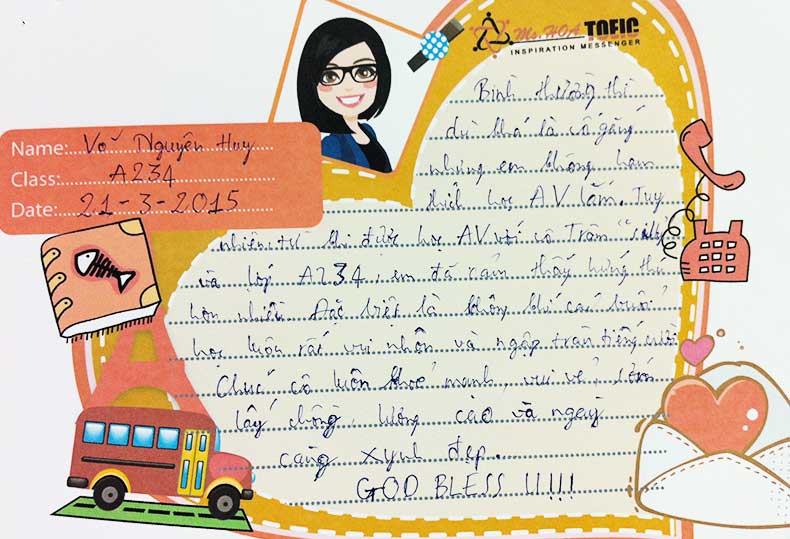 Ms. HOA TOEIC
INSPIRATION MESSENGER
Name: Võ Nguyên Huy
Class: A234
Date: 21-3-2015
Bình thường thì
dù khá là cố gắng
nhưng em không ham
thích học AV lắm. Tuy
nhiên, từ khi được học AV với cô Trâm
và lớp A234, em đã cảm thấy hứng thú
hơn nhiều. Đặc biệt là không khí các buổi
học luôn rất vui nhộn và ngập tràn tiếng cười
Chúc cô luôn khoẻ mạnh, vui vẻ, sớm
lấy chồng, lương cao và ngày
càng xynh đẹp.
GOD BLESS U!!!!